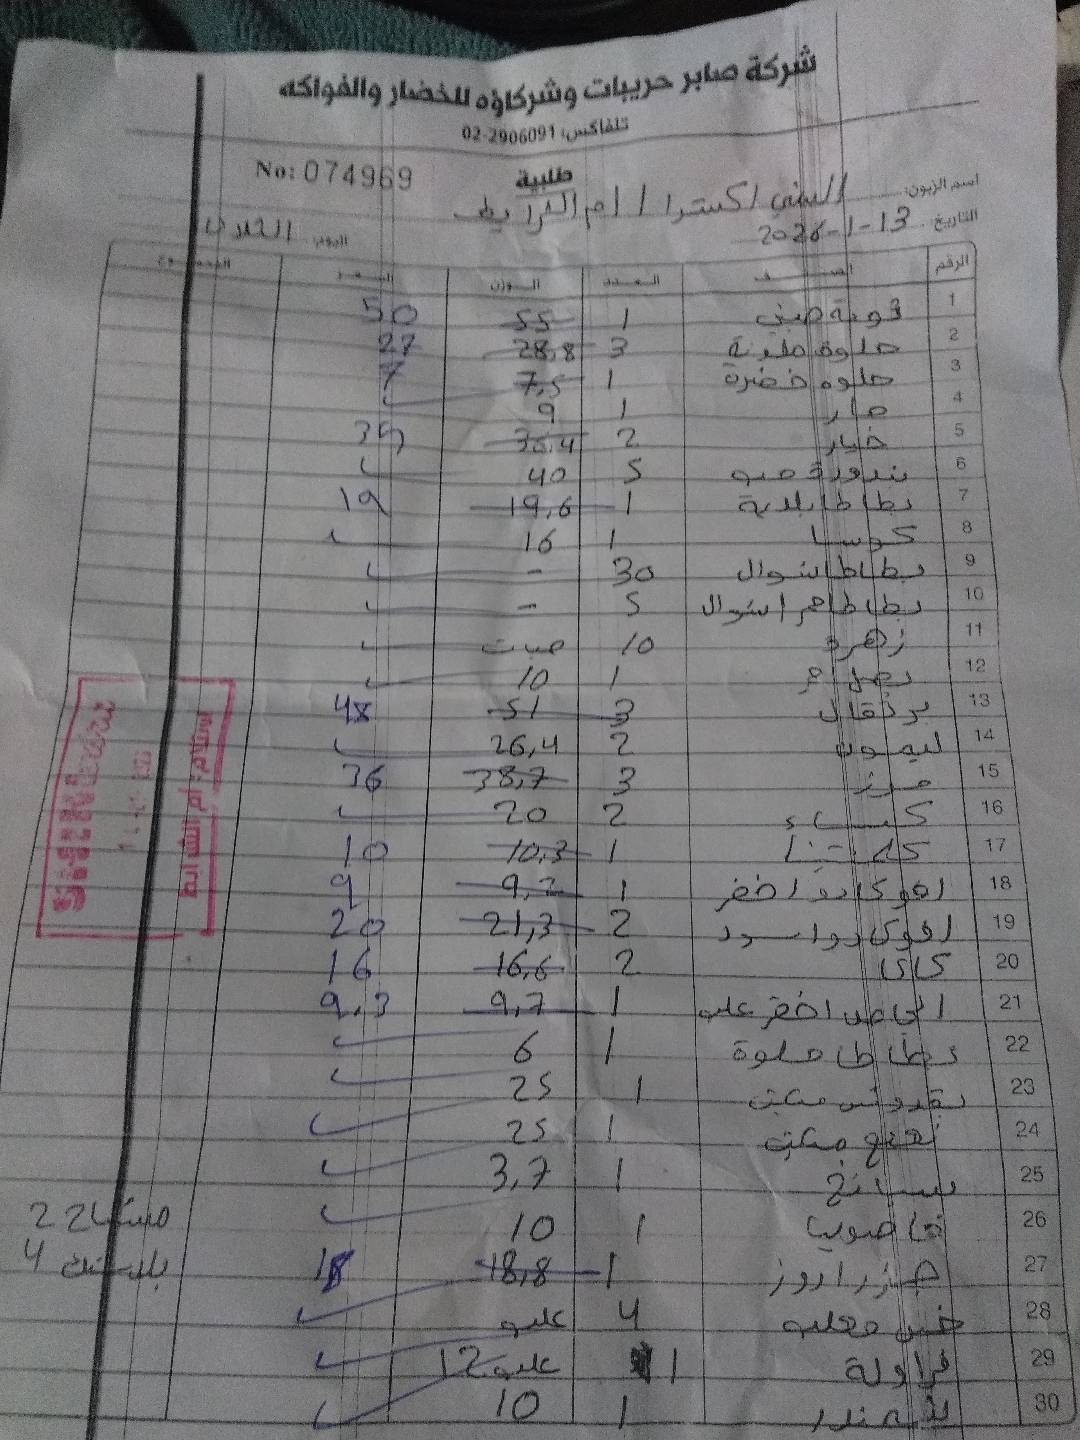 شركة صابر حريبات وشركاؤه للخضار والفواكه
تلفاكس: 02-2906091
طلبية
No: 074969
اسم الزبون: السني اكسترا / ام الشرايط
التاريخ: 13-1-2026 اليوم: الثلاثاء
الرقم الصنف العدد الوزن السعر المجموع
1 صيني 1 55 50
2 حلوة ملونة 3 28,8 27
3 حلوه خضرة 1 7,5 7
4 حار 1 9
5 خيار 2 36,4 35
6 بندورة حبه 5 40
7 بطاطا بلدية 1 19,6 19
8 كوسا 1 16
9 بطاطا شوال 30 -
10 بطاطا حمرا شوال 5 -
11 زهرة 10 حبات
12 بصل احمر 1 10
13 برتقال 3 51 48
14 ليمون 2 26,4
15 موز 3 38,7 36
16 2 20
17 كلمنتينا 1 10,3 10
18 افوكادو اخضر 1 9,2 9
19 افوكادو اسود 2 21,3 20
20 كاكا 2 16,6 16
21 اجاص اخضر علبه 1 9,7 9,3
22 بطاطا حلوة 1 6
23 بقدونس مكبس 1 25
24 نعنع مكبس 1 25
25 سبانخ 1 3,7
26 فاصوليا 1 10
27 جزر ابو 1 18,8 18
28 خس معلب 4 علبه
29 فراولة 1 علبه 12
30 شمندر 1 10
مشتاح 22
بلاستك 4
مستلم: ام الشرايط